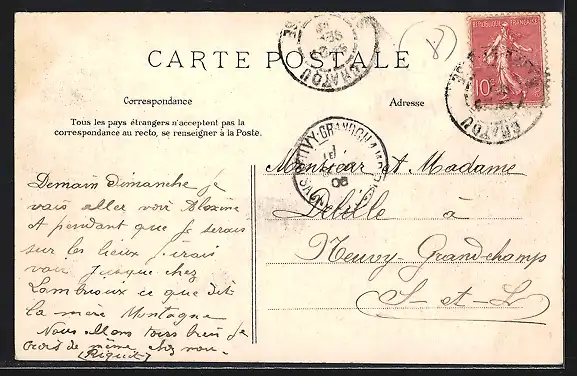 CARTE POSTALE
RÉPUBLIQUE FRANÇAISE
10
CHATOU
CHATOU
Correspondance
Adresse
Tous les pays étrangers n'acceptent pas la
correspondance au recto, se renseigner à la Poste.
Demain Dimanche je
vais aller voir
et pendant que je serais
sur les lieux j'irais
voir jusque chez
Lambrioux ce que dit
la mère Montagne
Nous allons tous bien je
crois de même chez vous.
Monsieur et Madame
Delille à
Neuvy-Grandchamp
S-et-L